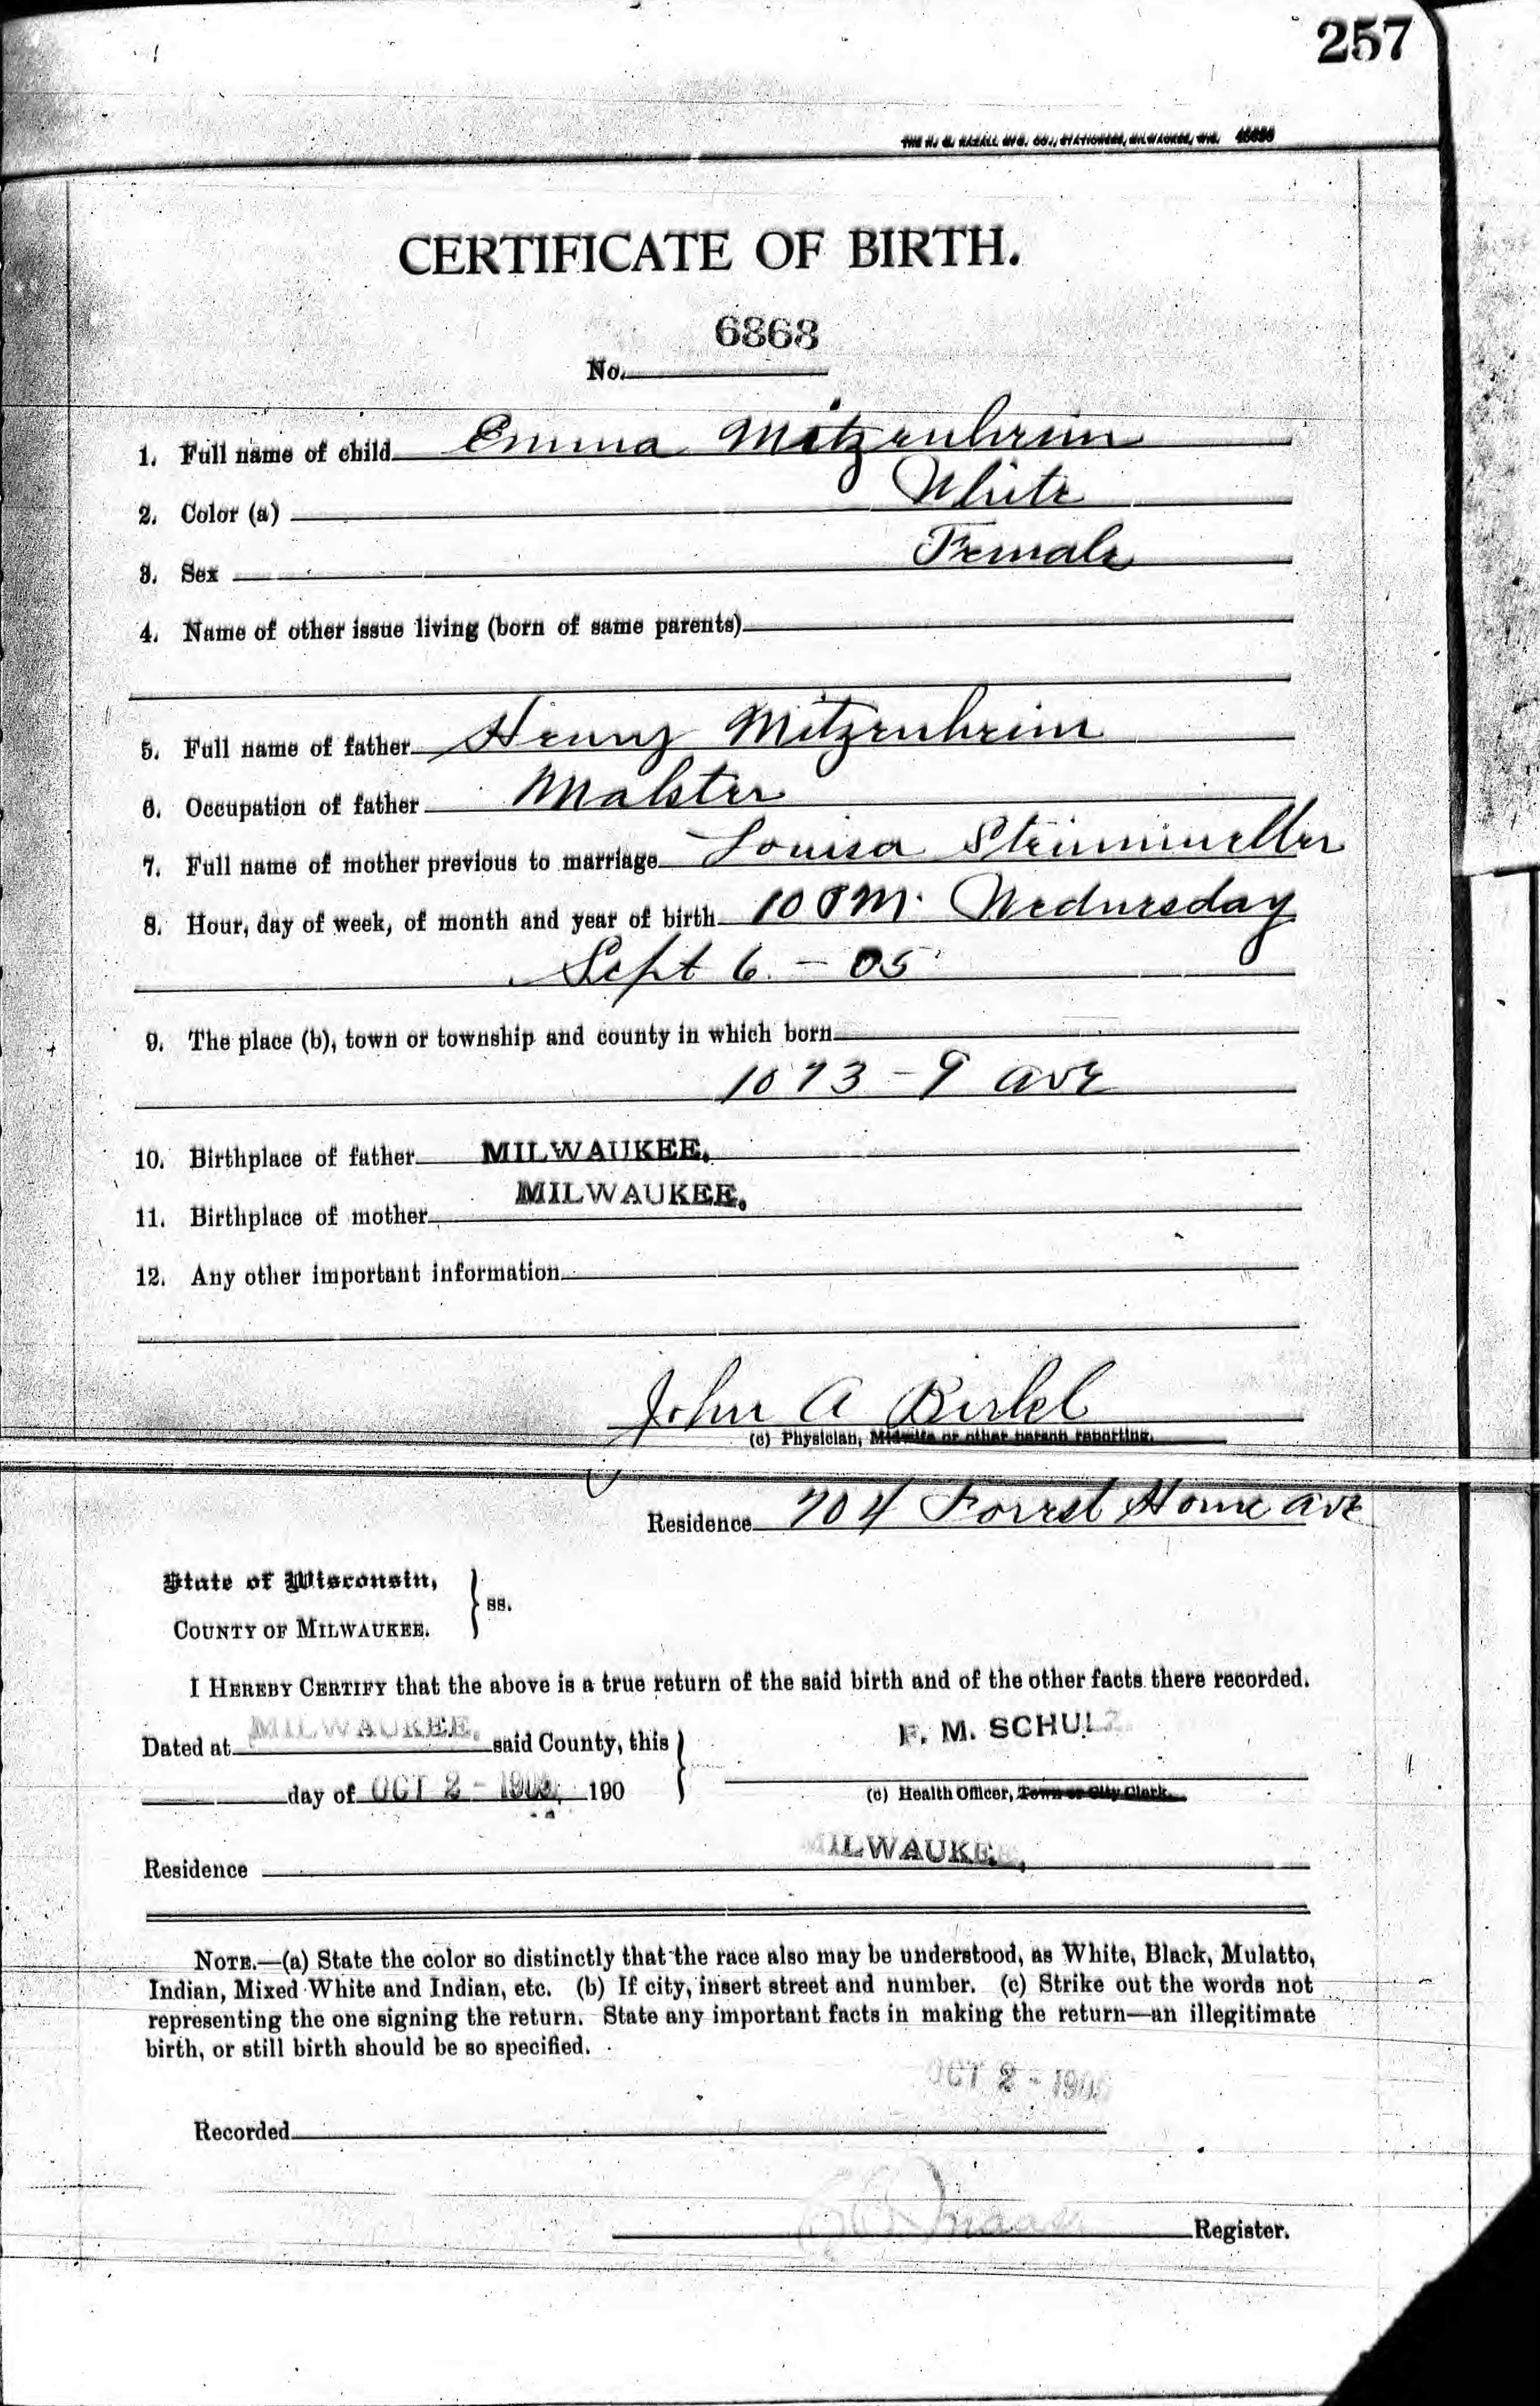 257
THE H. G. RAZALL MFG. CO., STATIONERS, MILWAUKEE, WIS.
CERTIFICATE OF BIRTH.
6868
No.
1. Full name of child Emma Mitzenheim
2. Color (a) White
3. Sex Female
4. Name of other issue living (born of same parents)
5. Full name of father Henry Mitzenheim
6. Occupation of father Malster
7. Full name of mother previous to marriage Louisa Steinmueller
8. Hour, day of week, of month and year of birth 10 PM. Wednesday
Sept 6 - 05
9. The place (b), town or township and county in which born
1073 - 9 ave
10. Birthplace of father MILWAUKEE.
11. Birthplace of mother MILWAUKEE.
12. Any other important information
John A
(c) Physician, Midwife or other person reporting.
Residence 704 Forrest Home ave
State of Wisconsin,
COUNTY OF MILWAUKEE. } ss.
I HEREBY CERTIFY that the above is a true return of the said birth and of the other facts there recorded.
Dated at MILWAUKEE, said County, this
F. M. SCHULZ
day of OCT 2 - 190
(c) Health Officer, Town or City Clerk.
Residence MILWAUKEE,
NOTE.—(a) State the color so distinctly that the race also may be understood, as White, Black, Mulatto,
Indian, Mixed White and Indian, etc. (b) If city, insert street and number. (c) Strike out the words not
representing the one signing the return. State any important facts in making the return—an illegitimate
birth, or still birth should be so specified.
OCT 2 - 190
Recorded
Register.